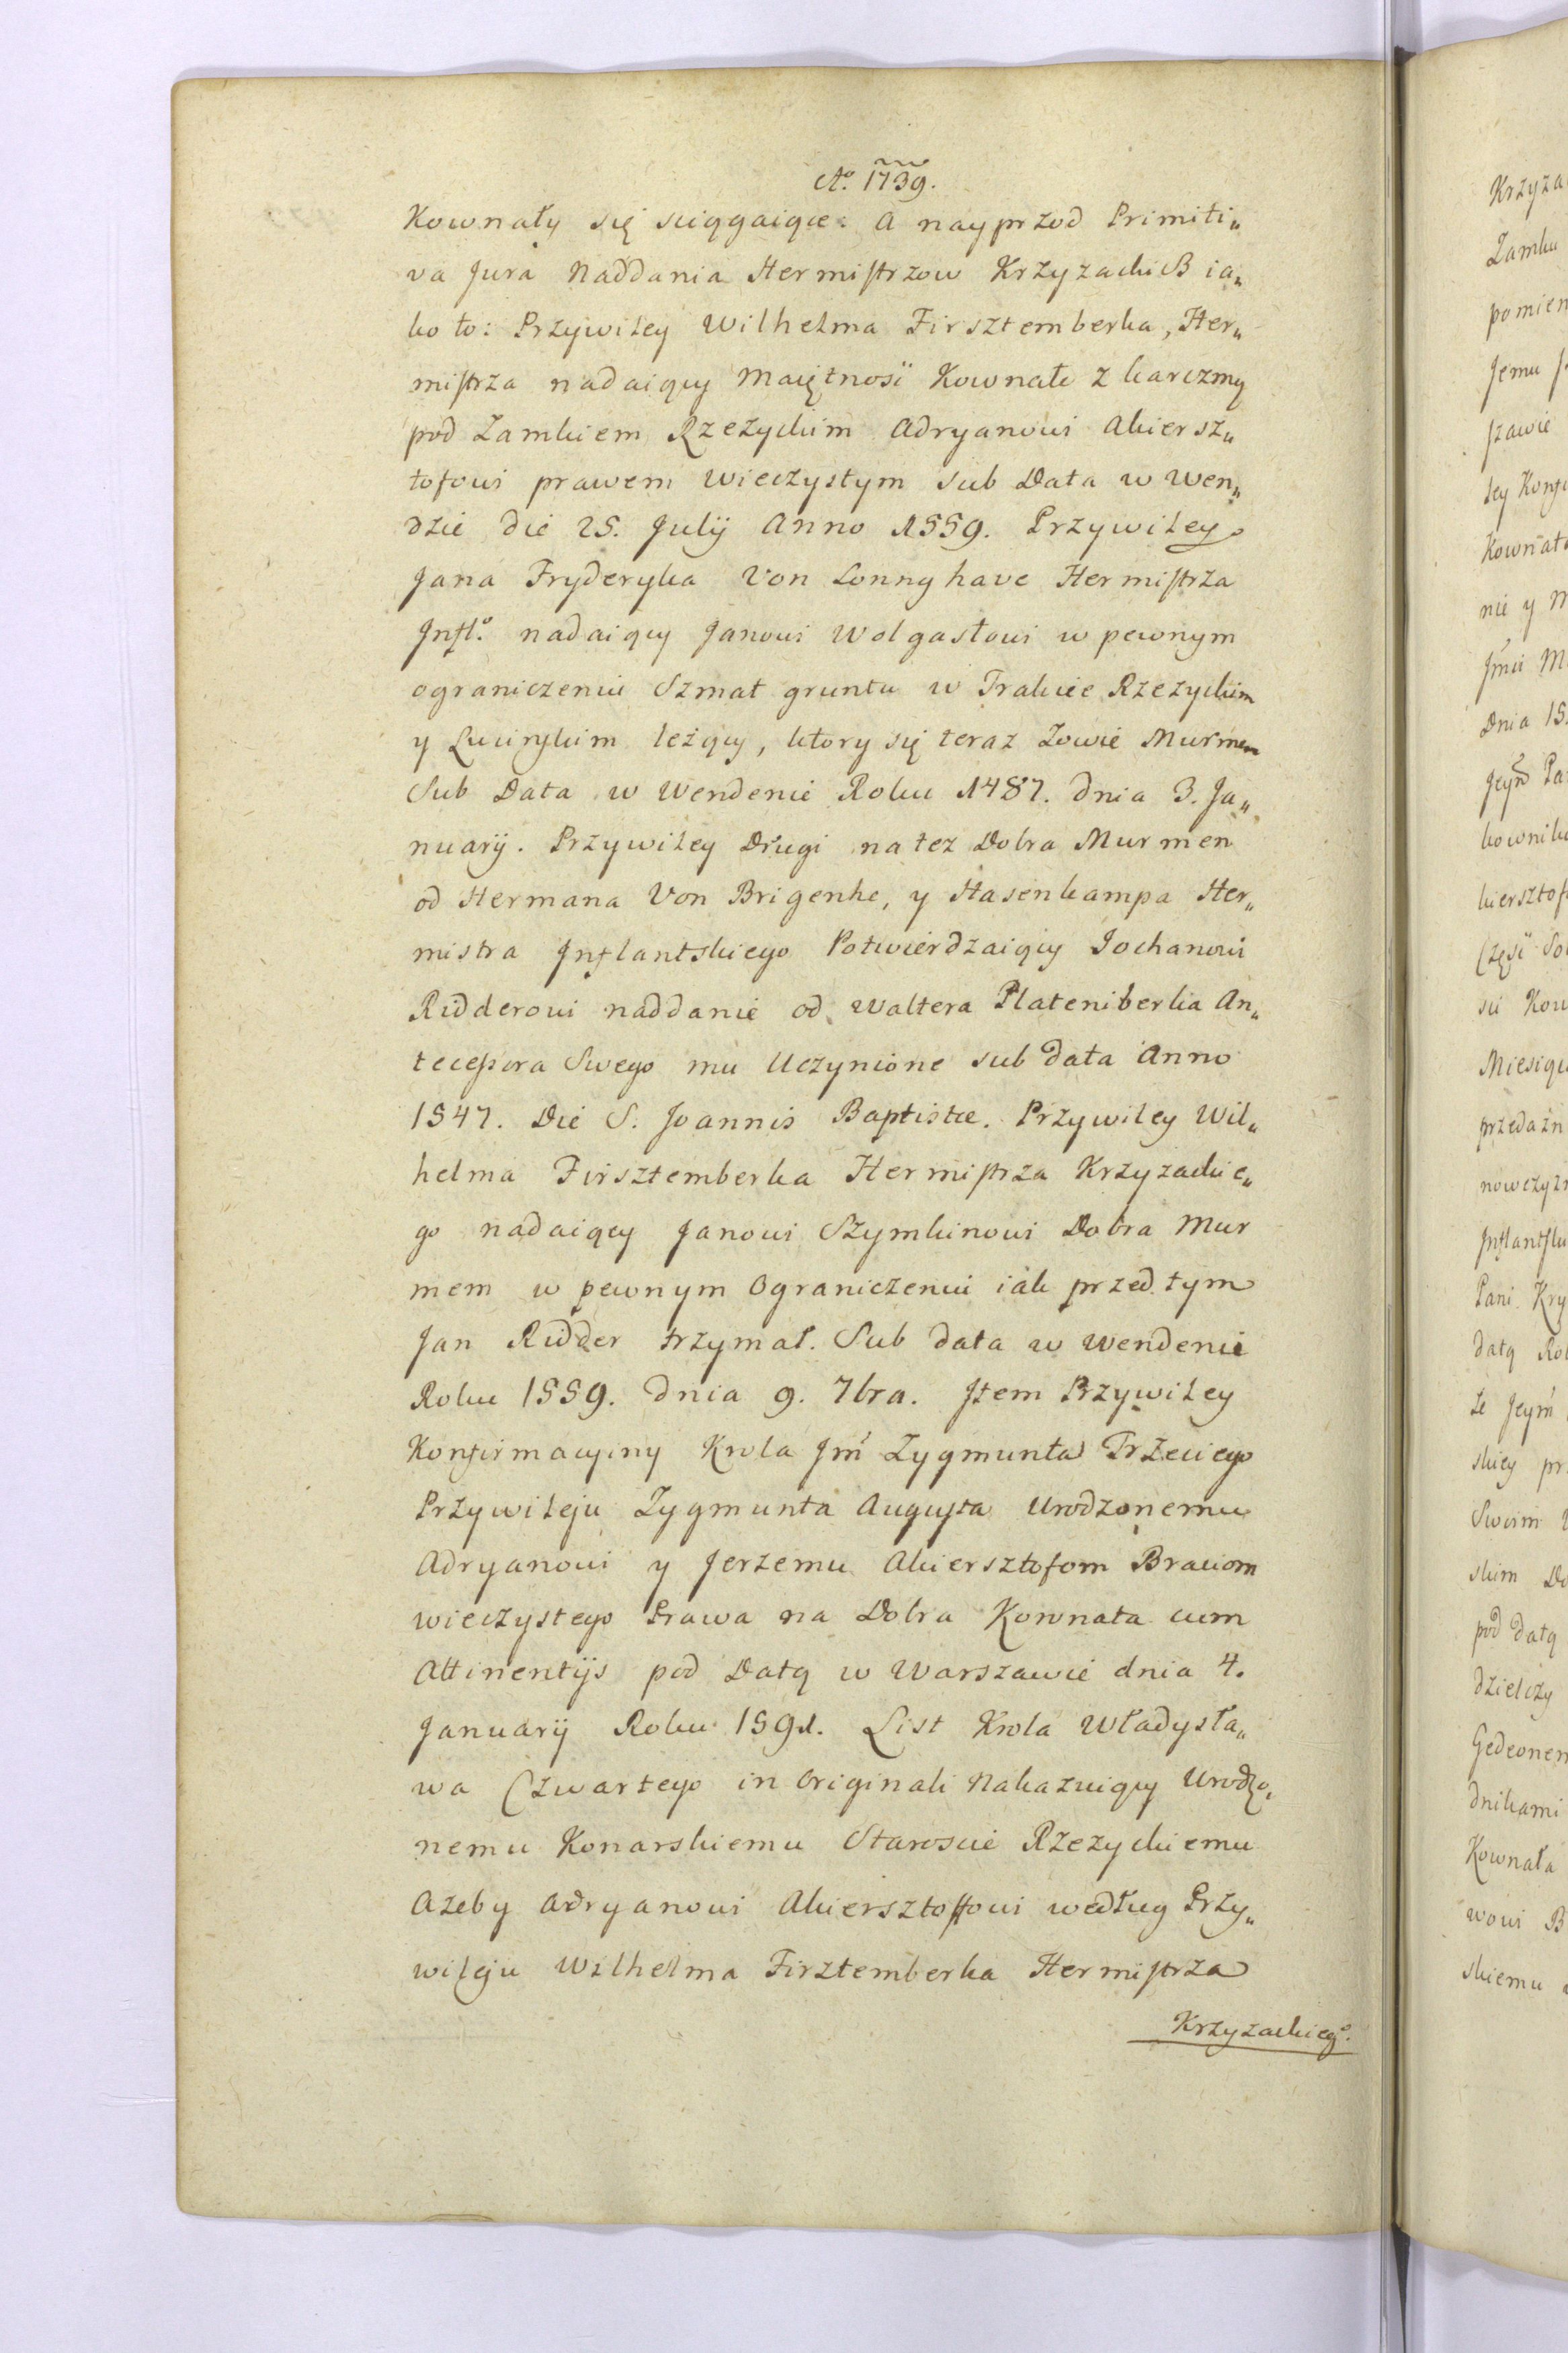 Ao. 1739.
Kownaty się sciągaiące. A nayprzod Primiti„
va Jura Naddania Hermistrzow Krzyzackich ia„
ko to: Przywiley Wilhelma Firsztemberka, Her„
mistrza nadaiący Maiętnosć Kownate z karczmą
pod Zamkiem Rzezyckim Adryanowi Akiersz„
tofowi prawem Wieczystym sub Data w Wen„
dzie die 25. Julij Anno 1559. Przywiley
Jana Fryderyka Von Lonnghave Hermistrza
Infl.o nadaiący Janowi Wolgastowi w pewnym
ograniczeniu Szmat gruntu w Trakcie Rzezyckim
y Lucinskim leżący, ktory się teraz Zowie Murmen
Sub Data w Wendenie Roku 1487. dnia 3. Ja„
nuarij. Przywiley Drugi na też Dobra Murmen
od Hermana Von Brigenhe, y Hasenkampa Her„
mistra Inflantskiego Potwierdzaiący Jochanowi
Ridderowi naddanie od Waltera Plateniberka An„
tecessora Swego mu Uczynione sub data Anno
1547. Die S. Joannis Baptistæ. Przywiley Wil„
helma Firsztemberka Hermistrza Krzyzackie„
go nadaiący Janowi Szymkinowi Dobra Mur
mem w pewnym Ograniczeniu iak przed tym
Jan Ridder trzymał. Sub data w Wendenie
Roku 1559. dnia 9. 7bra. Item Przywiley
Konfirmacyiny Krola Jm Zygmunta Trzeciego
Przywileju Zygmunta Augusta Urodzonemu
Adryanowi y Jerzemu Akiersztofom Braciom
wieczystego Prawa na Dobra Kownata cum
Attinentijs pod Datą w Warszawie dnia 4.
Januarij Roku 1591. List Krola Władysła„
wa Czwartego in Originali Nakazuiący Urodzo„
nemu Konarskiemu Staroscie Rzezyckiemu
Azeby Adryanowi Akiersztoffowi według Przy„
wileju Wilhelma Firztemberka Hermistrza
Krzyzackieg.o
Krzyza
Zamku
pomien
Jemu
szawie
ley Konfi
Kownat
nie y M
Jmci M
Dnia 15.
Jeym Pa
kownik
kiersztof
Część
sci Kow
Miesiąc
przedazn
nowczyz
Inflantsk
Pani Kry
datą Ro
te Jeym
skiey pr
Swoim
skim Do
pod datą
dzielczy
Gedeonem
dnikami
Kownata
wowi B
skiemu